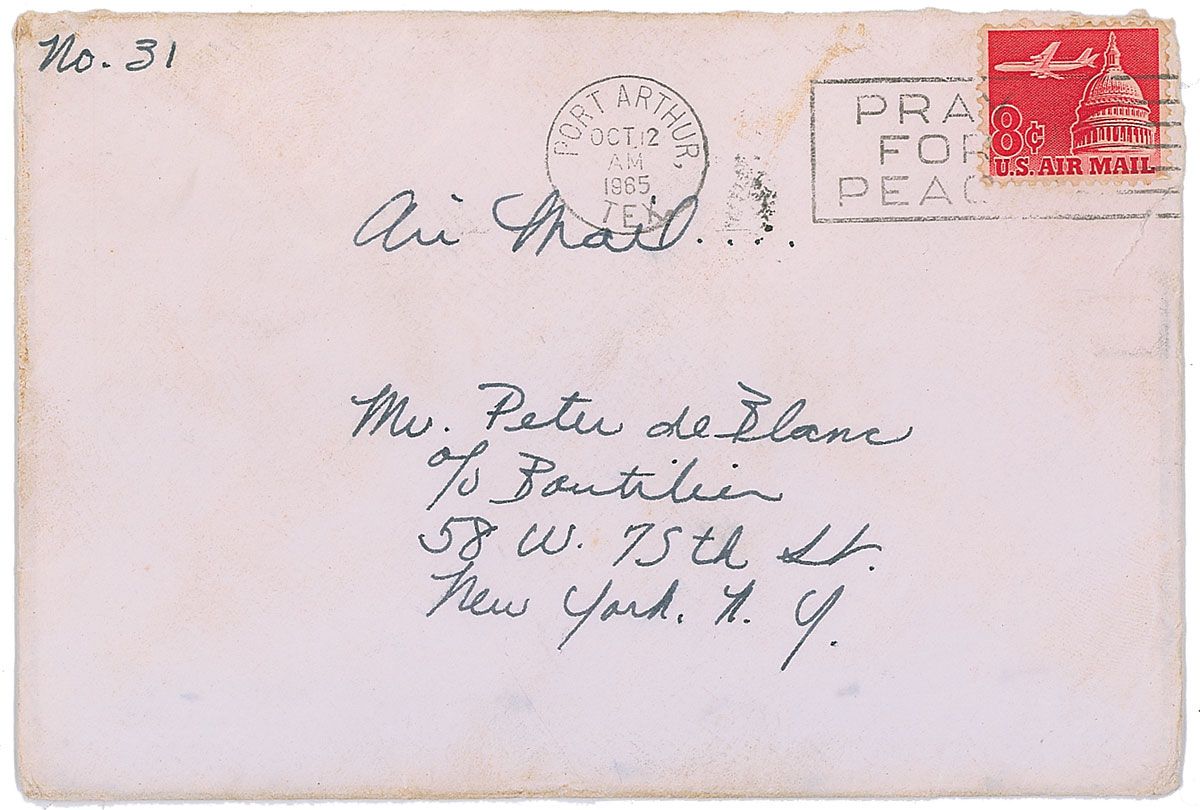 No. 31
PORT ARTHUR,
OCT 12
AM
1965
TEX
PRA
FOR
PEAC
8¢
U.S. AIR MAIL
Air Mail....
Mr. Peter de Blanc
c/o Boutilier
58 W. 75th St.
New York. N. Y.